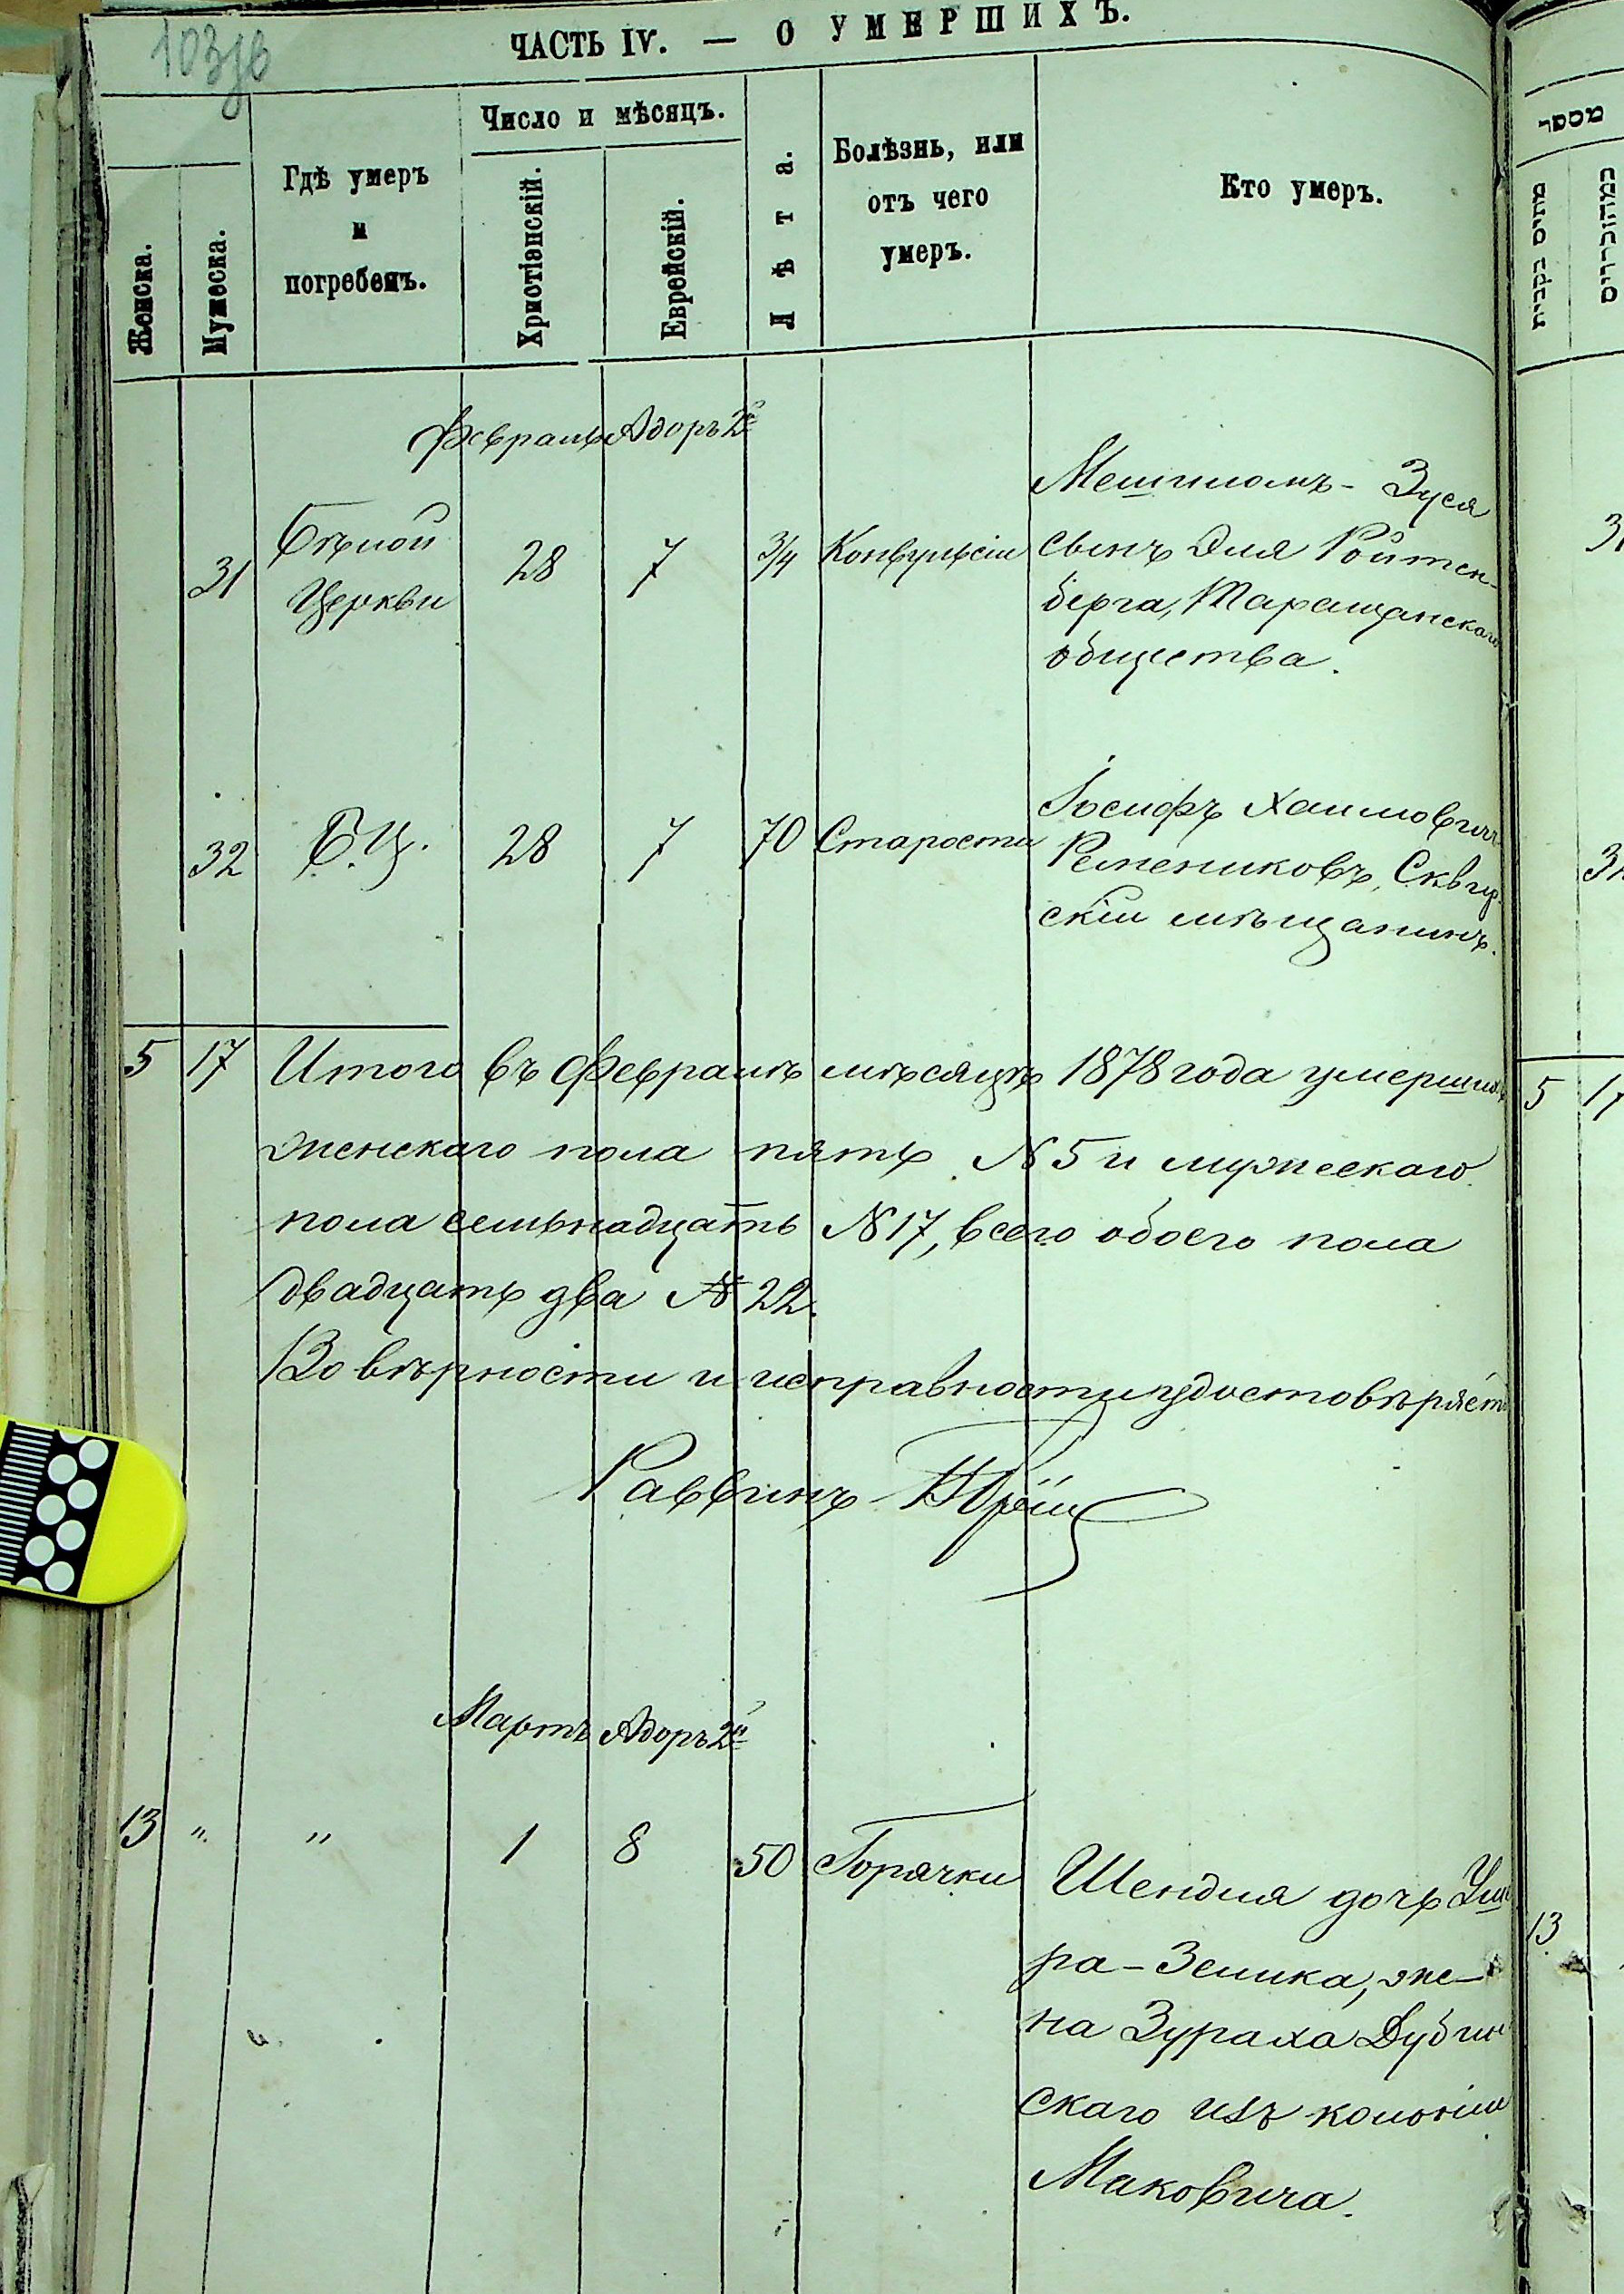 103зв
ЧАСТЬ IV. — О УМЕРШИХЪ.
Женска.
Мужеска.
Гдѣ умеръ
и
погребенъ.
Число и мѣсяцъ.
Христіенскій.
Еврейскій.
Лѣта.
Болѣзнь, или
отъ чего
умеръ.
Кто умеръ.
Февраль Адоръ 2й
31 Бѣлой Церкви 28 7 3/4 Конвульсіи
Мешиломъ - Зуся
сынъ Эля Ройтен-
берга, Таращанскаго
общества.
32 Б.Ц. 28 7 70 Старости
Іосифъ Хаимовичъ
Ременниковъ, Сквир-
скій мѣщанинъ.
5 17 Итого въ Февралѣ мѣсяцѣ 1878 года умершихъ
женскаго пола пять №5 и мужескаго
пола семьнадцать №17, всего обоего пола
двадцать два №22.
Во вѣрности и исправности удостовѣряетъ
Раввинъ
Мартъ Адоръ 2й
13 " " 1 8 50 Горячки
Шендля дочь Уше
ра-Зелика, же-
на Зураха Дубин
скаго изъ колоніи
Маковича.
מספר
מתים נקבות
במהזכרים
31
32
5 17
13